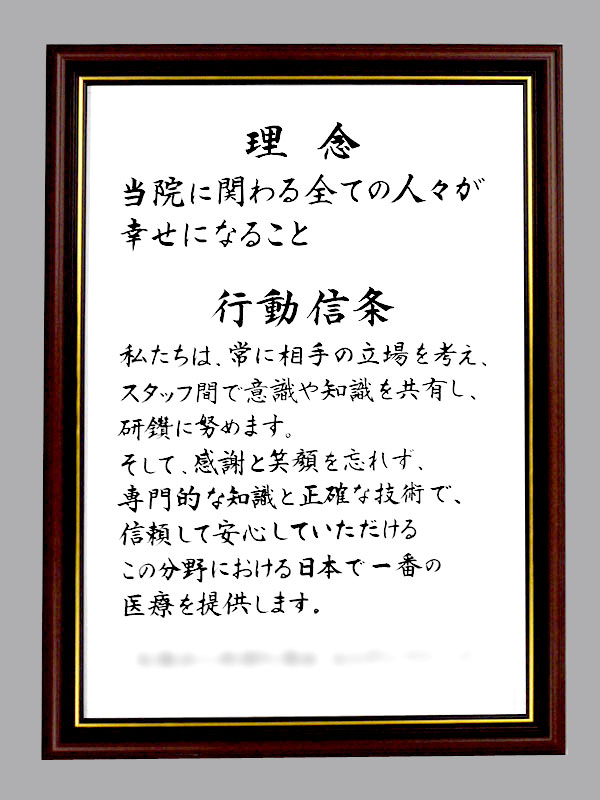 理念
当院に関わる全ての人々が
幸せになること
行動信条
私たちは、常に相手の立場を考え、
スタッフ間で意識や知識を共有し、
研鑽に努めます。
そして、感謝と笑顔を忘れず、
専門的な知識と正確な技術で、
信頼して安心していただける
この分野における日本で一番の
医療を提供します。